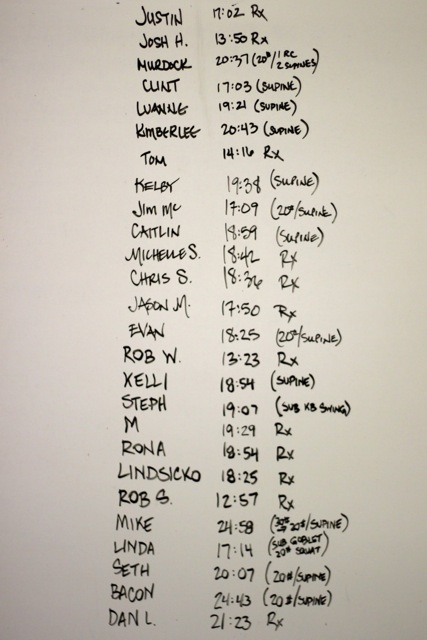 JUSTIN 17:02 Rx
JOSH H. 13:50 Rx
MURDOCK 20:37 (20#/1 RC 2 SUPINES)
CLINT 17:03 (SUPINE)
LUANNE 19:21 (SUPINE)
KIMBERLEE 20:43 (SUPINE)
TOM 14:16 Rx
KELBY 19:38 (SUPINE)
JIM MC 17:09 (20#/SUPINE)
CAITLIN 18:59 (SUPINE)
MICHELLE S. 18:42 Rx
CHRIS S. 18:36 Rx
JASON M. 17:50 Rx
EVAN 18:25 (20#/SUPINE)
ROB W. 13:23 Rx
KELLI 18:54 (SUPINE)
STEPH 19:07 (SUB KB SWING)
M 19:29 Rx
RONA 18:54 Rx
LINDSICKO 18:25 Rx
ROB S. 12:57 Rx
MIKE 24:58 (30# → 20#/SUPINE)
LINDA 17:14 (SUB GOBLET 20# SQUAT)
SETH 20:07 (20#/SUPINE)
BACON 24:43 (20#/SUPINE)
DAN L. 21:23 Rx